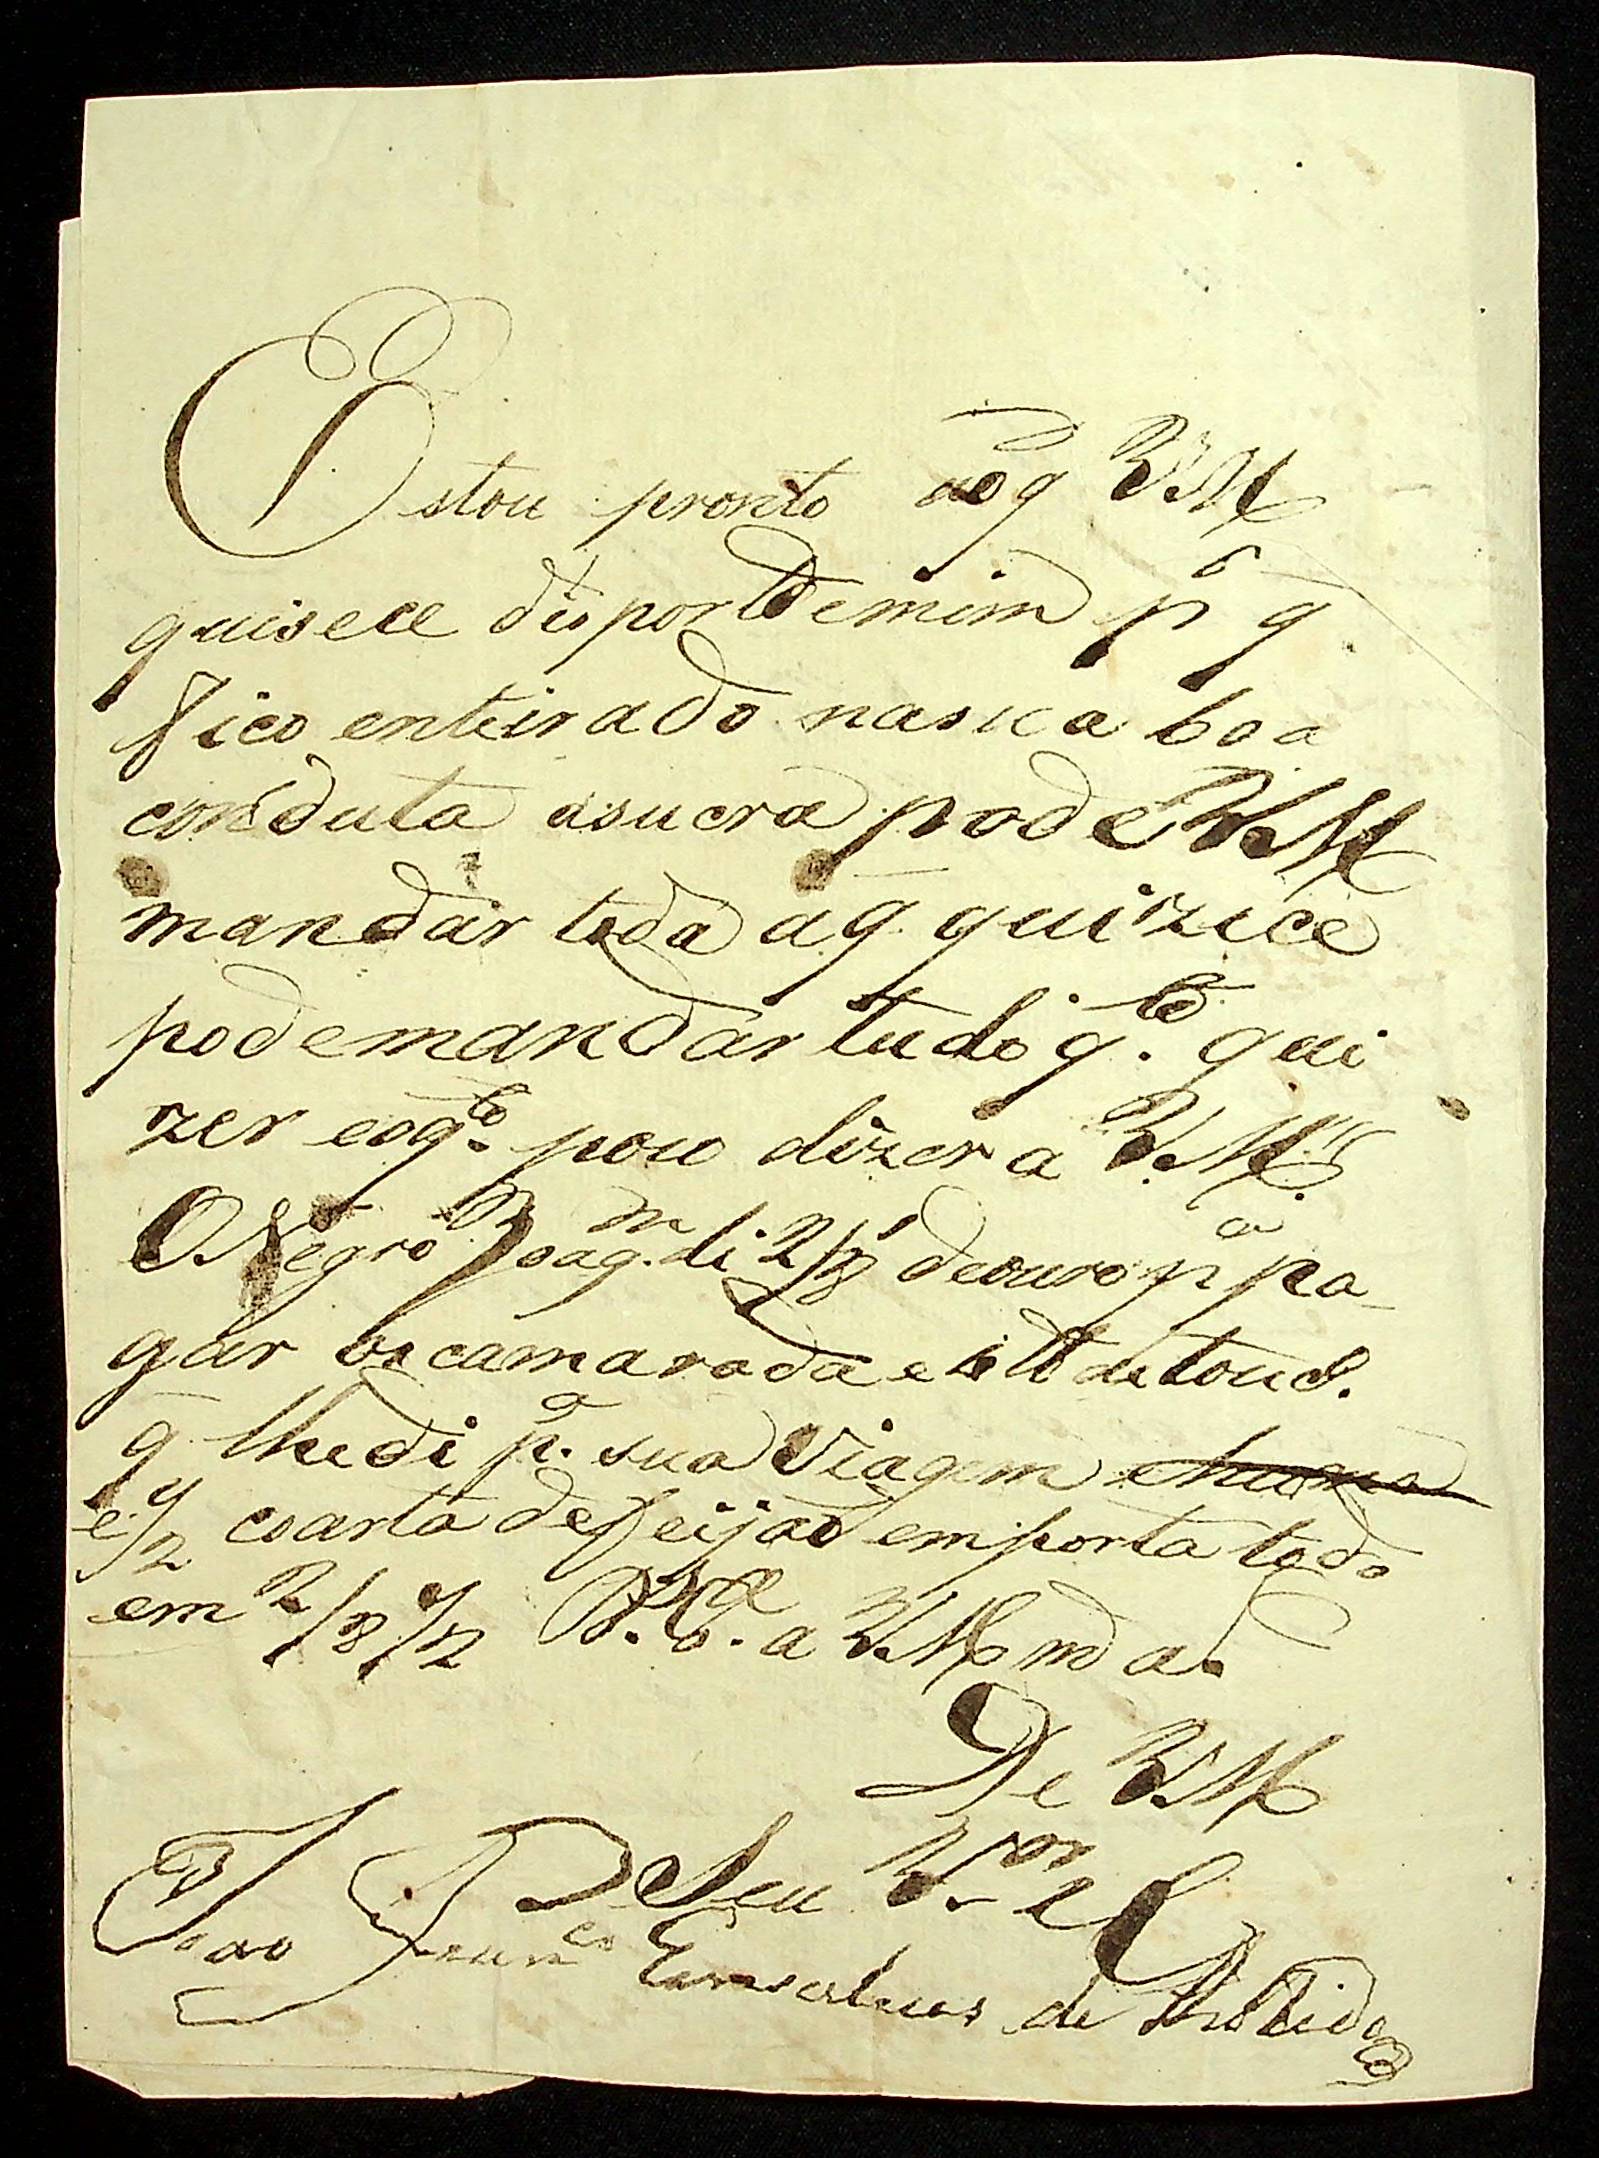 Estou pronto aoq̃ VM
quisece dispor demim p.ͦ q̃
fico enteirado nasua boa
conduta asucra pode VM
mandar toda aq̃ quizice
podemandar tudo q.to qui
zer eoq.to poço dizer a VM.ces
O Negro Joaq.m di 2/8 deouro p.a pa_
gar os camarada e de touc.
q̃ lhedi p.a sua Viagem
e 1/2 coarta defeijaõ emporta todo
em 2/8 1/2 a VM
De VM
Seu V.or e C
Joaõ Fran.co Gonsalues de